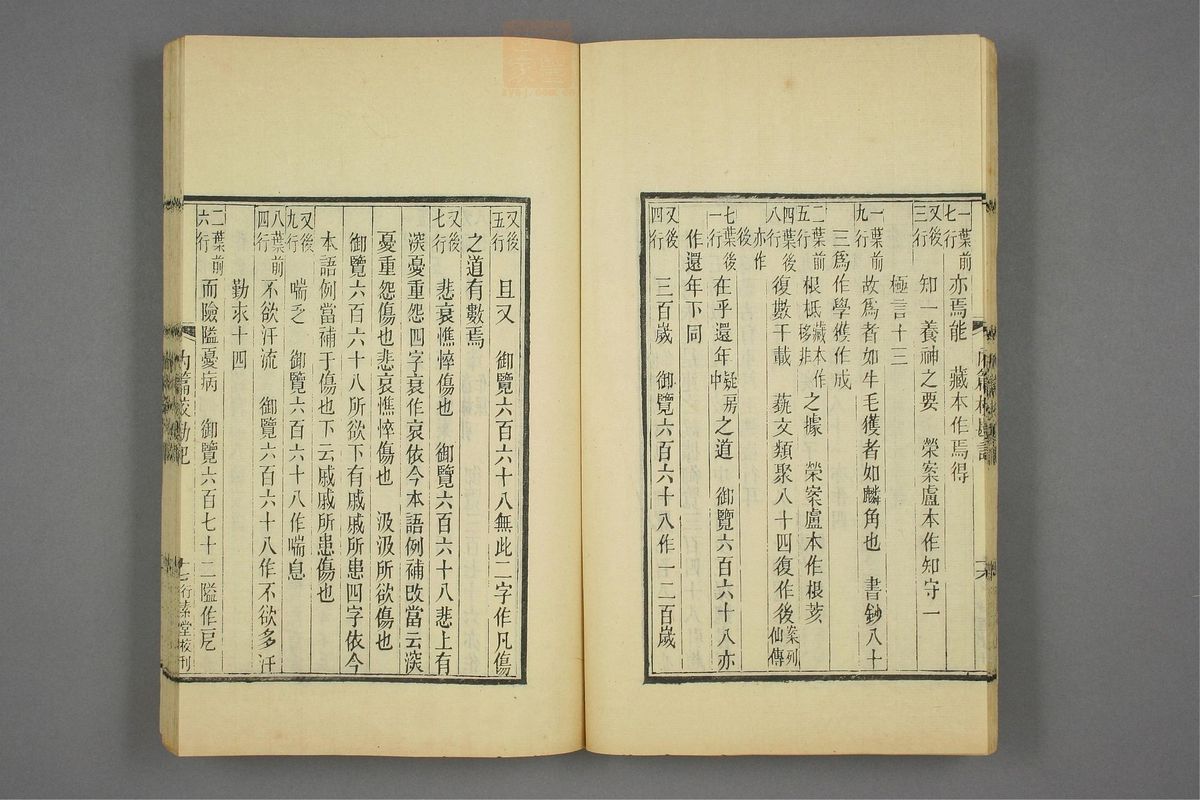 一葉前七行 亦焉能 藏本作焉得
又後三行 知一養神之要 榮案盧本作知守一
極言十三
一葉前九行 故爲者如牛毛獲者如麟角也 書鈔八十
三爲作學獲作成
二葉前五行 根柢藏本作移非之據 榮案盧本作根荄
四葉後八行 復數千載 蓺文類聚八十四復作後案列仙傳
亦作後
七葉後一行 在乎還年中疑房之道 御覽六百六十八亦
作還年下同
又後四行 三百歲 御覽六百六十八作一二百歲
又後五行 且又 御覽六百六十八無此二字作凡傷
之道有數焉
又後七行 悲哀憔悴傷也 御覽六百六十八悲上有
深憂重怨四字哀作哀依今本語例補改當云深
憂重怨傷也悲哀憔悴傷也 汲汲所欲傷也
御覽六百六十八所欲下有戚戚所患四字依今
本語例當補于傷也下云戚戚所患傷也
又後九行 喘乏 御覽六百六十八作喘息
八葉前四行 不欲汗流 御覽六百六十八作不欲多汗
勤求十四
二葉前六行 而險隘憂病 御覽六百七十二隘作戹
內篇校勘記
七行素堂校刊